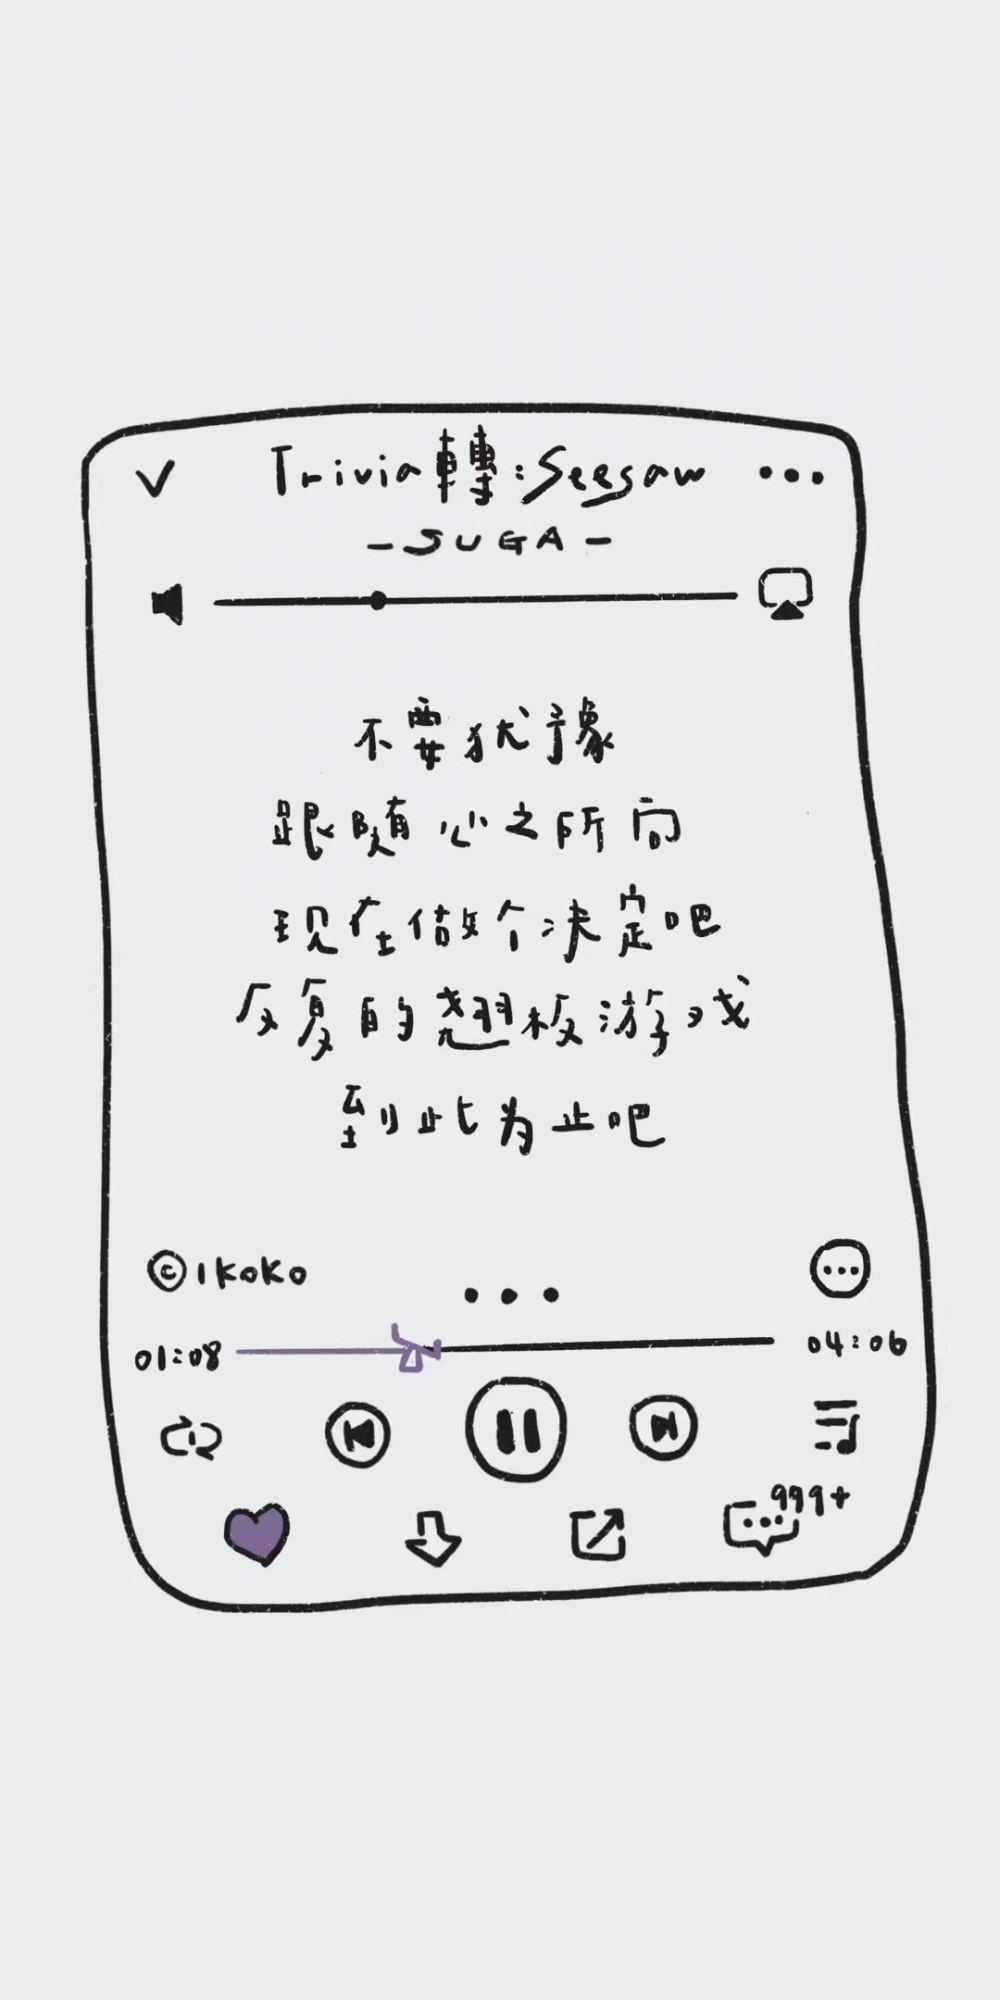 Trivia 轉:Seesaw
-SUGA-
不要犹豫
跟随心之所向
现在做个决定吧
反复的翘板游戏
到此为止吧
©IKOKO
01:08
04:06
999+